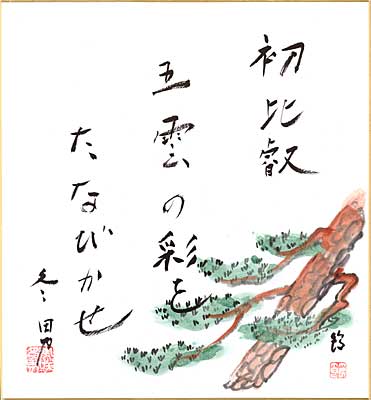 初比叡
五雲の彩を
たなびかせ